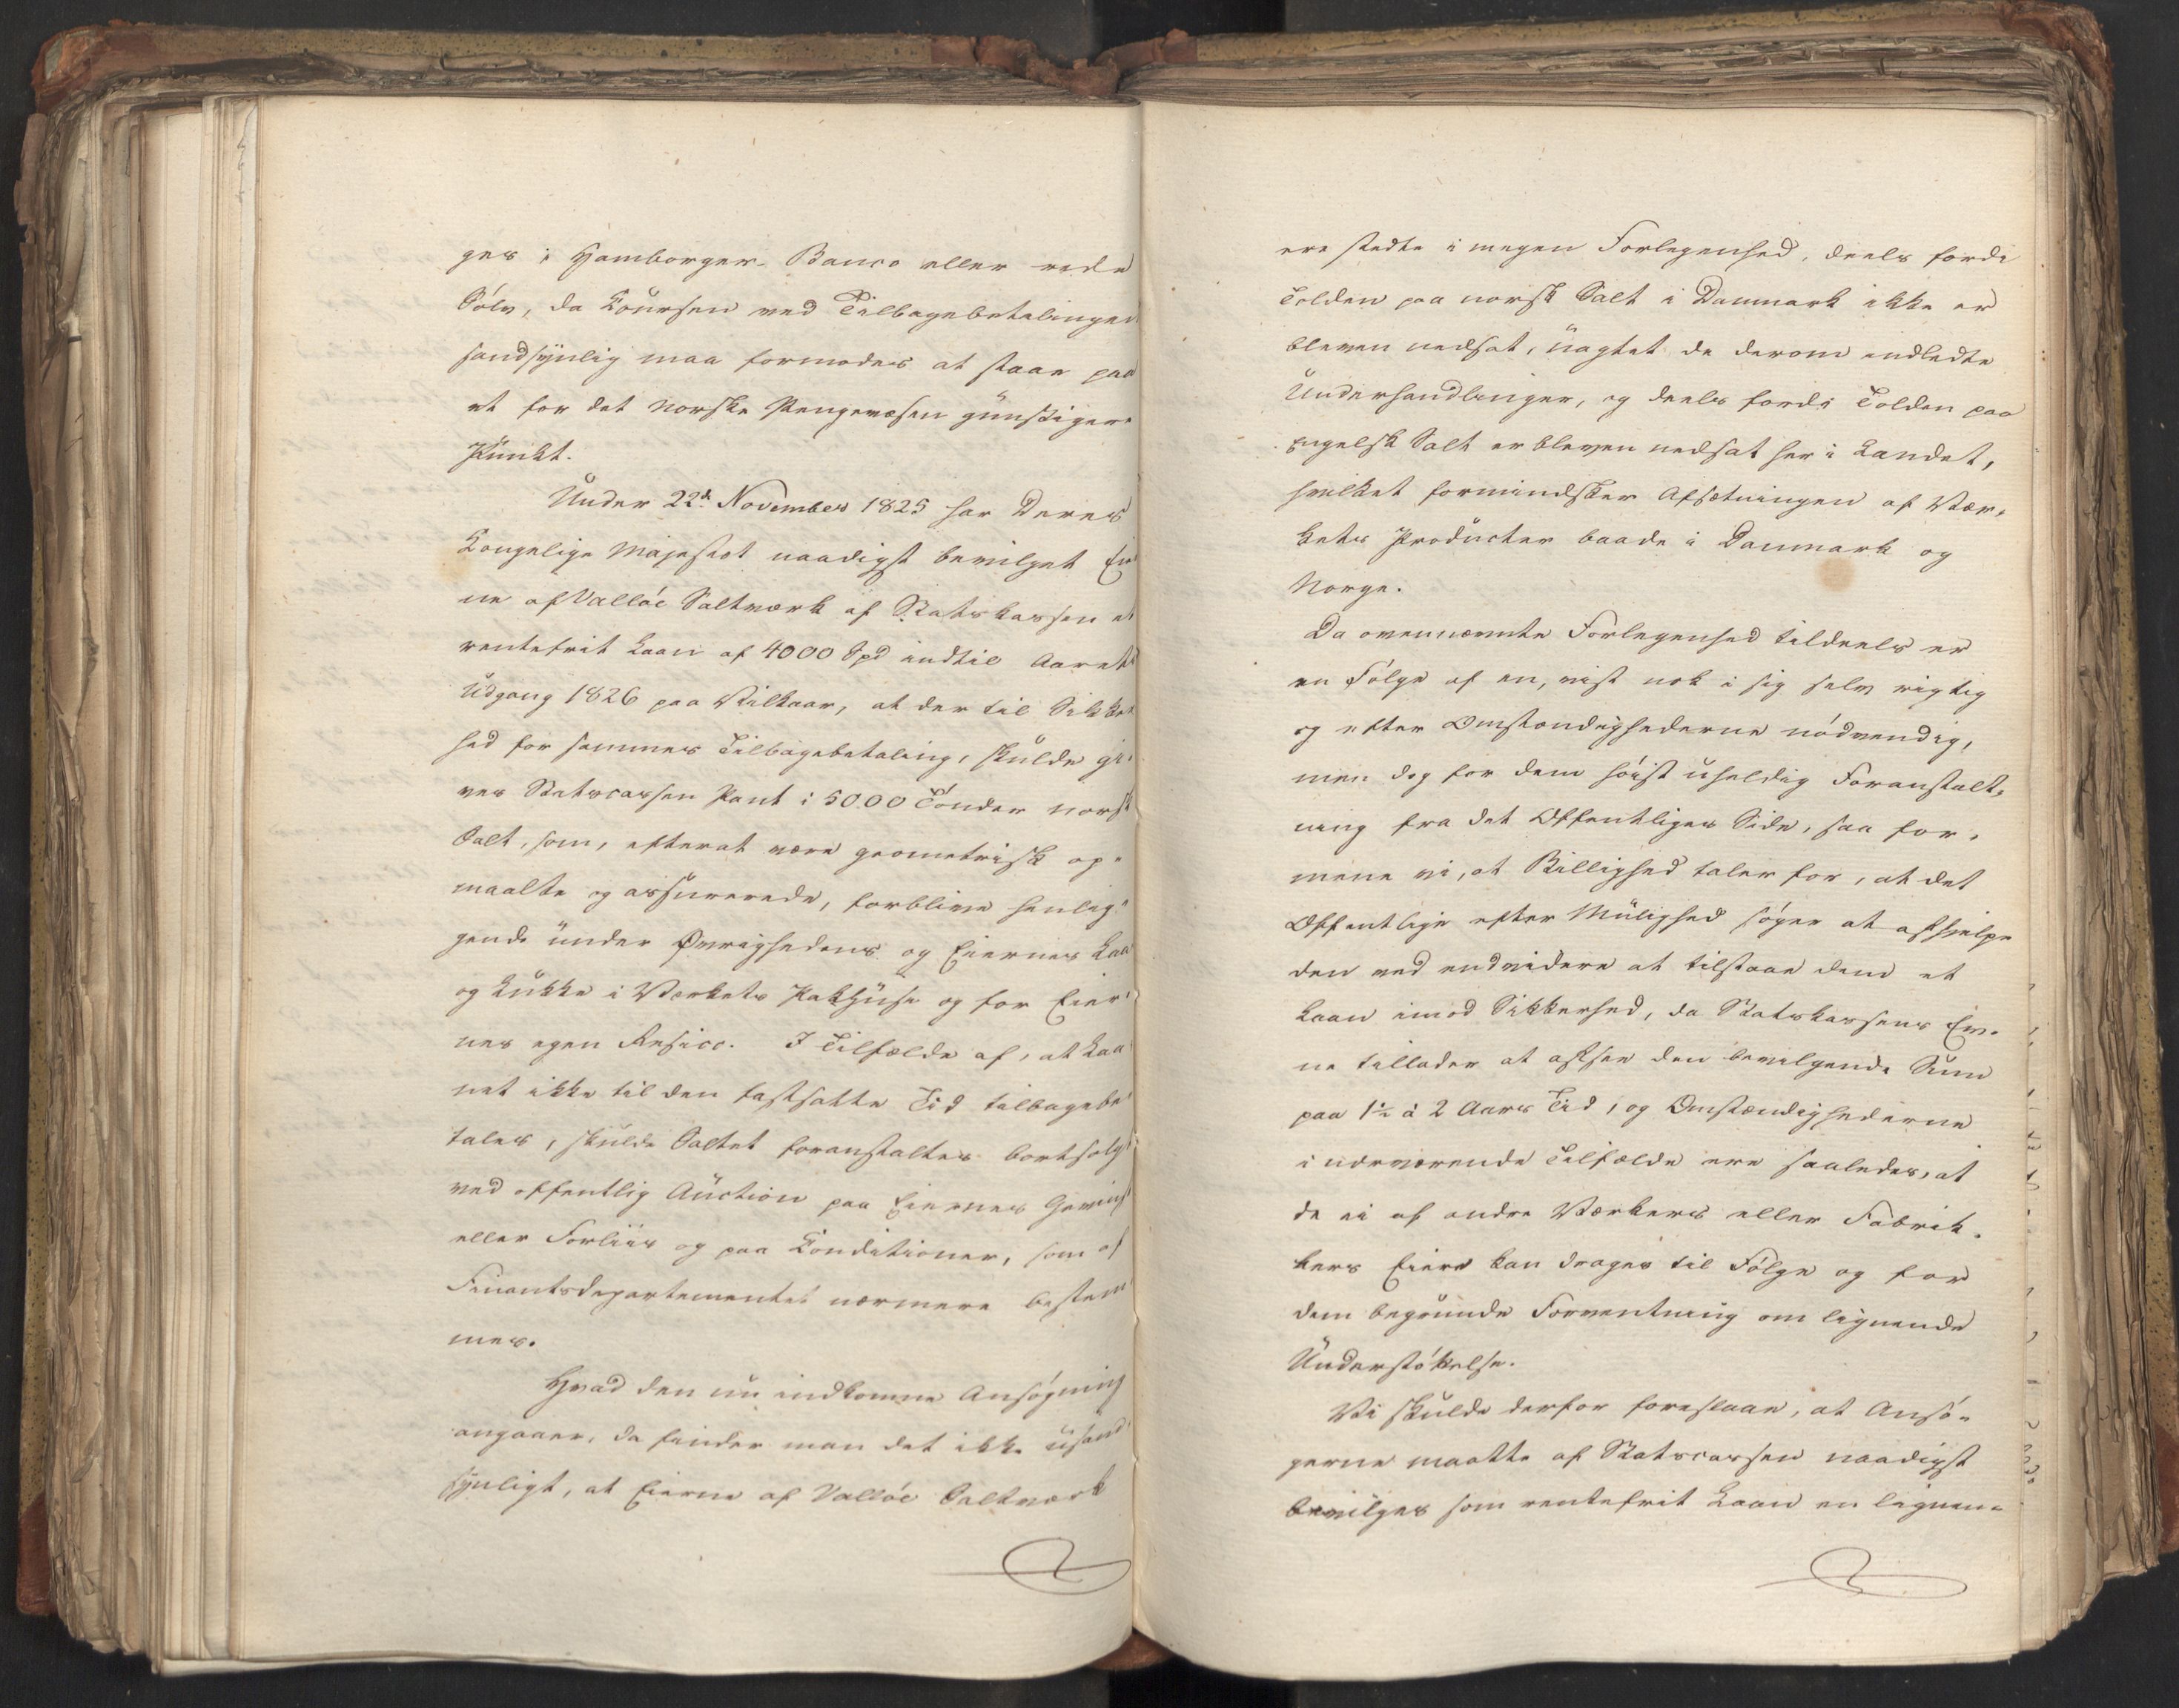 ges i Hamborger Banco eller rede
Sölv, da Coursen ved Tilbagebetalingen
sandsynlig maa formodes at staae paa
et for det norske Pengevæsen gunstigere
Punkt.
Under 22d November 1825 har Deres
Kongelige Majestæt naadigst bevilget Eier¬
ne af Vallöe Saltværk af Statskassen et
rentefrit Laan af 4000 Spd indtil Aarets
Udgang 1826 paa Vilkaar, at der til Sikker¬
hed for sammes Tilbagebetaling, skulde gi¬
ves Statscassen Pant i 5000 Tönder norsk
Salt, som, efterat være geometrisk op¬
maalte og assurerede, forblive henlig¬
gende under Øvrighedens og Eiernes Laas
og Lukke i Værkets Pakhuse og for Eier¬
nes egen Resico. I Tilfælde af, at Laa¬
net ikke til den fastsatte Tid tilbagebe¬
tales, skulde Saltet foranstaltes bortsolgt
ved offentlig Auction paa Eiernes Gevinst
eller Forliis og paa Conditioner, som af
Finantsdepartementet nærmere bestem¬
mes.
Hvad den nu indkomne Ansögning
angaaer, da finder man det ikke usand¬
synligt, at Eierne af Vallöe Saltværk
ere stedte i megen Forlegenhed, deels fordi
Tolden paa norsk Salt i Danmark ikke er
bleven nedsat, uagtet de derom indledte
Underhandlinger, og deels fordi Tolden paa
Engelsk Salt er bleven nedsat her i Landet,
hvilket formindsker Afsætningen af Vær¬
kets Producter baade i Danmark og
Norge.
Da ovennævnte Forlegenhed tildeels er
en Fölge af en, vist nok i sig selv rigtig
og efter Omstændighederne nödvendig,
men dog for dem höist uheldig Foranstalt¬
ning fra det Offentliges Side, saa for¬
mene vi, at Billighed taler for, at det
Offentlige efter Mulighed söger at afhjelpe
den ved endvidere at tilstaae dem et
Laan imod Sikkerhed, da Statskassens Ev¬
ne tillader at afsee den bevilgende Sum
paa 1½ à 2 Aars Tid, og Omstændighederne
i nærværende Tilfælde ere saaledes, at
de ei af andre Værkers eller Fabrik¬
kers Eiere kan drages til Fölge og for
dem begrunde Forventning om lignende
Understöttelse.
Vi skulde derfor foreslaae, at Ansö¬
gerne maatte af Statscassen naadigst
bevilges som rentefrit Laan en lignen¬